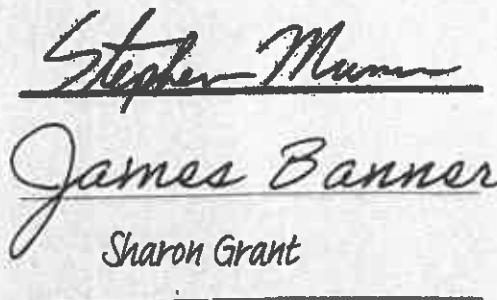 Stephen
James Banner
Sharon Grant